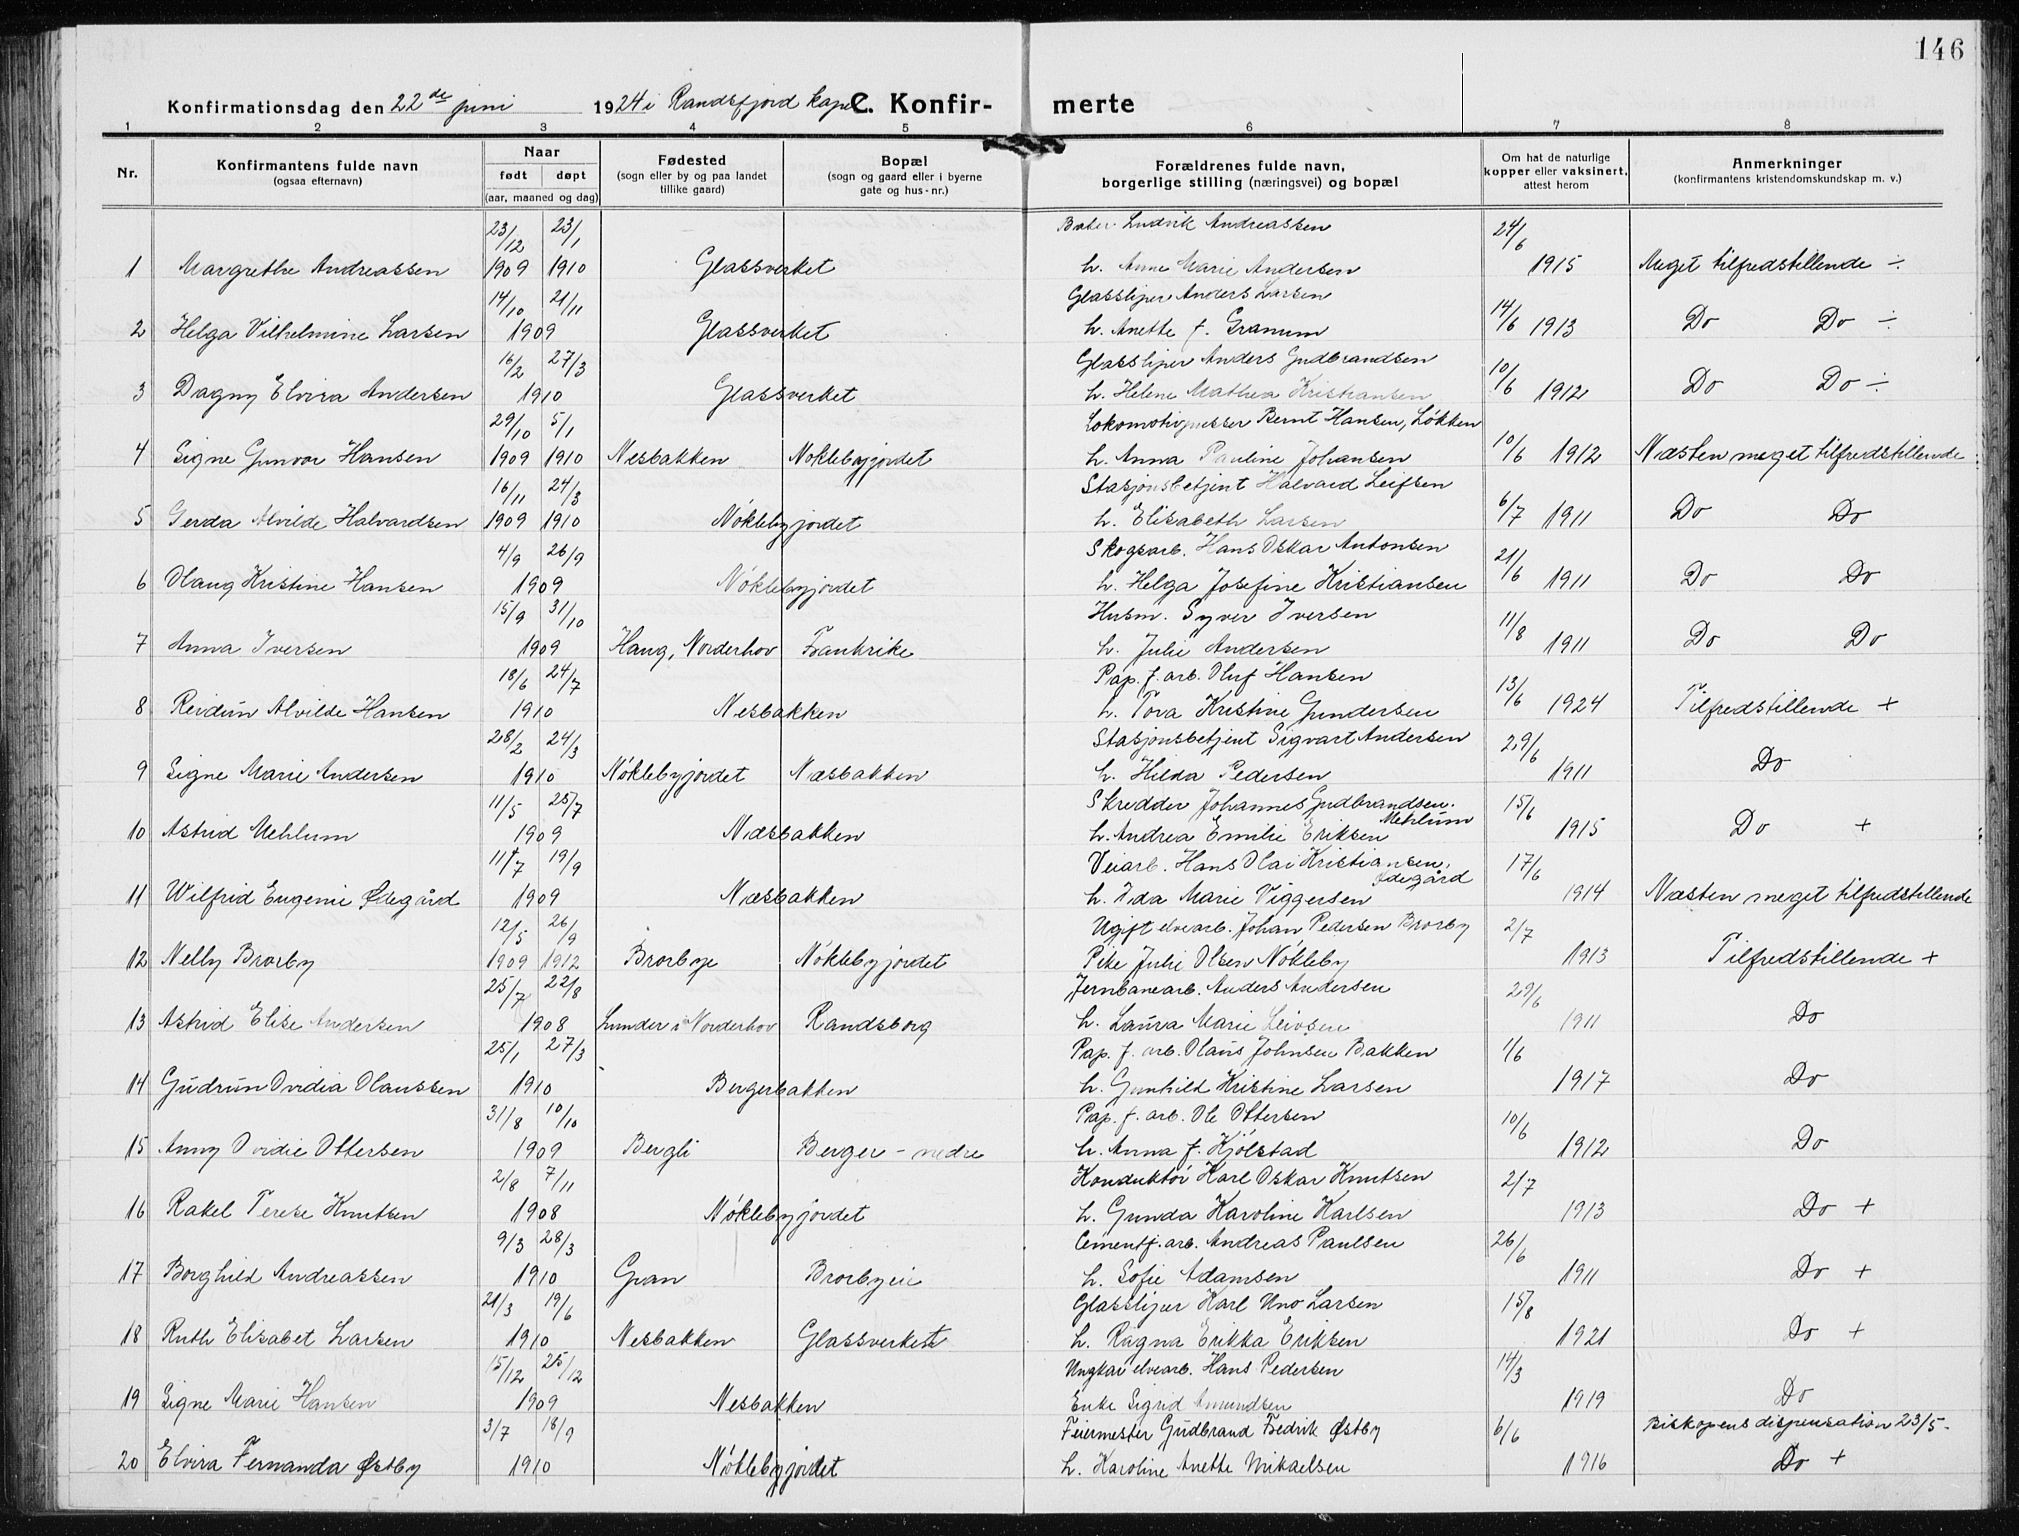 146
Konfirmationsdag den 22de juni 1924 i Randsfjord kapel C. Konfirmerte
1 2 3 4 5 6 7 8
Nr. Konfirmantens fulde navn (ogsaa efternavn) Naar født døpt (aar, maaned og dag) Fødested (sogn eller by og paa landet tillike gaard) Bopæl (sogn og gaard eller i byerne gate og hus-nr.) Forældrenes fulde navn, borgerlige stilling (næringsvei) og bopæl Om hat de naturlige kopper eller vaksinert, attest herom Anmerkninger (konfirmantens kristendomskundskap m. v.)
23/12 23/1 Ludvik Andreassen 24/6
1 Margrethe Andreassen 1909 1910 Glassverket h. Anne Marie Andersen 1915 Meget tilfredstillende ÷
14/10 21/11 Glassliper Anders Larsen
2 Helga Vilhelmine Larsen 1909 Glassverket h. Anette f. Granum 14/6 1913 Do Do ÷
16/2 27/3 Glassliper Anders Gudbrandsen
3 Dagny Elvira Andersen 1910 Glassverket h. Helene Mathea Kristiansen 10/6 1912 Do Do ÷
29/10 5/1 Lokomotivpusser Bernt Hansen, Løkken
4 Signe Gunvor Hansen 1909 1910 Nesbakken Noklebyjordet h. Anna Pauline Johansen 10/6 1912 Næsten meget tilfredstillende
16/11 24/3 Stasjonsbetjent Halvard Leifsen
5 Gerda Alvilde Halvardsen 1909 1910 Nøklebyjordet h. Elisabeth Larsen 6/7 1911 Do Do
4/9 26/9 Skogsarb. Hans Oskar Antonsen
6 Olaug Kristine Hansen 1909 Nøklebyjordet h. Helga Josefine Kristiansen 21/6 1911 Do Do
15/9 31/10 Husm. Syver Iversen
7 Anna Iversen 1909 Haug, Norderhov Frankrike h. Julie Andersen 11/8 1911 Do Do
18/6 24/7 Pap. f. arb. Oluf Hansen
8 Reidun Alvilde Hansen 1910 Nesbakken h. Tova Kristine Gundersen 13/6 1924 Tilfredstillende +
28/2 24/3 Stasjonsbetjent Sigvart Andersen
9 Signe Marie Andersen 1910 Nøklebyjordet Næsbakken h. Hilda Pedersen 29/6 1911 Do
11/5 25/7 Skredder Johannes Gudbrandsen. Mehlum
10 Astrid Mehlum 1909 Næsbakken h. Andrea Emilie Eriksen 15/6 1915 Do +
11/7 19/9 Veiarb. Hans Olai Kristiansen, Ødegård
11 Wilfrid Eugenie Ødegård 1909 Næsbakken h. Ida Marie Viggersen 17/6 1914 Næsten meget tilfredstillende
12/5 26/9 Ugift elvearb. Johan Pedersen Brorby
12 Nelly Brorby 1909 1912 Brorbye Nøklebyjordet Pike Julie Olsen Nøkleby 2/7 1913 Tilfredstillende +
25/7 22/8 Jernbanearb. Anders Andersen
13 Astrid Elise Andersen 1908 Lunder i Norderhov Randsborg h. Laura Marie Leivsen 29/6 1911 Do
25/1 27/3 Pap. f. arb. Olaus Johnsen Bakken
14 Gudrun Ovidia Olaussen 1910 Bergerbakken h. Gunhild Kristine Larsen 1/6 1917 Do
31/8 10/10 Pap. f. arb. Ole Ottersen
15 Anny Ovidie Ottersen 1909 Bergli Berger - nedre h. Anna f. Kjølstad 10/6 1912 Do
2/8 7/11 Konduktør Karl Oskar Knutsen
16 Rakel Terese Knutsen 1908 Nøklebyjordet h. Gunda Karoline Karlsen 2/7 1913 Do +
9/3 28/3 Cementf. arb. Andreas Paulsen
17 Borghild Andreassen 1910 Gran Brorbyeie h. Sofie Adamsen 26/6 1911 Do +
21/3 19/6 Glassliper Karl Uno Larsen
18 Ruth Elisabet Larsen 1910 Nesbakken Glassverket h. Ragna Erikka Eriksen 15/8 1921 Do +
15/12 25/12 Ungkar elvearb. Hans Pedersen
19 Signe Marie Hansen 1909 Nesbakken Enke Sigrid Amundsen 14/3 1919 Do
3/7 18/9 Feiermester Gudbrand Fredrik Østby Biskopens dispensation 23/5-
20 Elvira Fernanda Østby 1910 Nøklebyjordet h. Karoline Anette Mikaelsen 6/6 1916 Do +